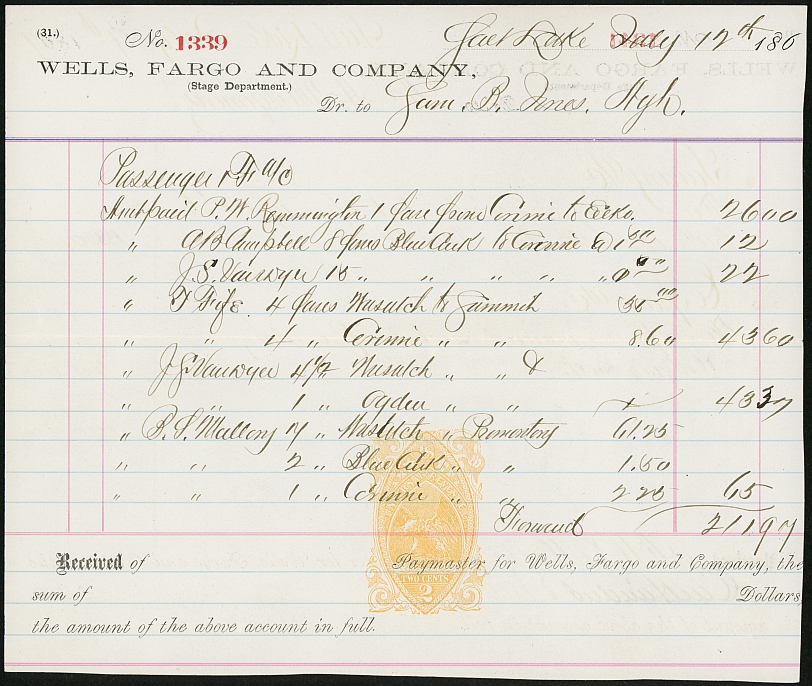 (31.)
No. 1339
Salt Lake July 12th 186
WELLS, FARGO AND COMPANY,
(Stage Department.)
Dr. to Sam. B. Jones. Agt.
Passenger a/c
Amt paid P. W. Remmington 1 fare from Corinne to Echo. 26 00
" A B Campbell 8 fares Blue Creek to Corinne @ 1 50 12
" J. S. Vanwyer 15 " " " " " 22
" T Fife 4 fares Wasatch to Summit 35 00
" " 4 " Corinne " " 8.60 43 60
" J S Vanwyer 4 1/2 " Wasatch " " &
" " 1 " Ogden " " 43 37
" R. S. Mallory 17 " Wasatch " Promontory 61.25
" " 2 " Blue Creek " " 1.50
" " 1 " Corinne " " 2 25 65
Forward 211 97
TWO CENTS
2
Received of Paymaster for Wells, Fargo and Company, the
sum of Dollars
the amount of the above account in full.